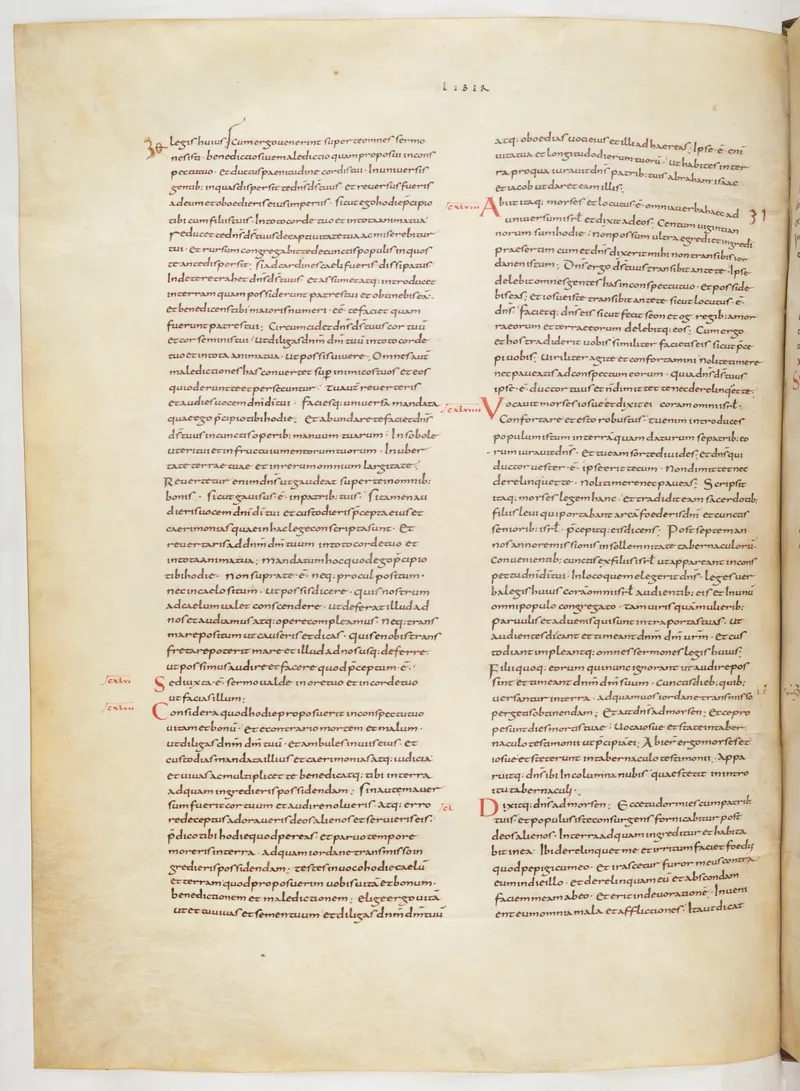 LIBER
30
legis huius Cum ergo uenerint super te omnes sermo
nes isti · benedictio siue maledictio quam proposui in cons
pectu tuo · et ductus paenitudine cordis tui · In uniuersis
gentib: in quas disperserit te dns ds tuus et reuersus fueris
ad eum et oboedieris eius imperiis · sicut ego hodie p̄cipio
tibi cum filiis tuis · In toto corde tuo et in tota anima tua ·
reducet te dns ds tuus de captiuitate tua ac miserebitur
tui · et rursum congregabit te de cunctis populis in quos
te ante dispersit · si ad cardines caeli fueris dissipatus
Inde te retrahet dns ds tuus · et assumet atq: introducet
in terram quam possiderunt patres tui et obtinebis eā ·
et benedicens tibi maioris numeri · eē te faciet quam
fuerunt patres tui ; Circumcidet dns ds tuus cor tuū
et cor seminis tui · ut diligas dnm dm tuū in toto corde
tuo et in tota anima tua · ut possis uiuere · Omnes aut̄
maledictiones has conuertet sup inimicos tuos et eos
qui oderunt te et persecuntur · Tu aut̄ reuerteris
et audies uocem dni di tui · faciesq: uniuersa mandata
quae ego p̄cipio tibi hodie ; et abundare te faciet dns
ds tuus in cunctis operib: manuum tuarum · In sobole
uteri tui et in fructu iumentorum tuorum · In uber
tate terrae tuae et in rerum omnium largitate ;
Reuertetur enim dns ut gaudeat super te in omnib:
bonis · sicut gauisus ē in patrib: tuis · si tamen au
dieris uocem dni di tui et custodieris p̄cepta eius et
caerimonias quae in hac lege conscripta sunt · Et
reuertaris ad dnm dm tuum in toto corde tuo et
in tota anima tua ; Mandatum hoc quod ego p̄cipio
tibi hodie · non supra te ē · neq: procul positum ·
nec in caelo situm · ut possis dicere · quis nostrum
ad caelum ualet conscendere · ut deferat illud ad
nos et audiamus atq: opere compleamus · Neq: trans
mare positum ut causeris et dicas · quis e nobis trans
fretare poterit mare et illud ad nos usq: deferre ·
ut possimus audire et facere quod p̄ceptum ē ·
cxlvi
Sed iuxta ē sermo ualde in ore tuo et in corde tuo
ut facias illum ;
cxlvii
Considera quod hodie proposuerit in conspectu tuo
uitam et bonū · et e contrario mortem et malum ·
ut diligas dnm dm tuū · et ambules in uiis eius · et
custodias mandata illius et caerimonias atq: iudicia ·
et uiuas ac multiplicet te benedicatq: tibi in terra
ad quam ingredieris possidendam ; Sin aut̄ auer
sum fuerit cor tuum et audire nolueris · atq: erro
re deceptus adoraueris deos alienos et seruieris eis ·
p̄dico tibi hodie quod pereas · et paruo tempore
moreris in terra · ad quam iordane transmisso in
gredieris possidendam ; testes inuoco hodie caelū
et terram quod proposuerim uobis uitā et bonum ·
benedictionem et maledictionem ; elige ergo uitā
ut et tu uiuas et semen tuum et diligas dnm dm tuū
atq: oboedias uoci eius et illi adhaereas · Ipse ē eni
uita tua et longitudo dierum tuorū · ut habites in ter
ra pro qua iurauit dns patrib: tuis abraham isaac
et iacob ut daret eam illis ·
cxlviii
31
Abiit itaq: moyses et locutus ē omnia uerba haec ad
uniuersum isrl et dixit ad eos · Centum uiginti an
norum sum hodie · non possum ultra egredi et ingredi
praesertim cum et dns dixerit mihi non transibis ior
danen istum ; Dns ergo ds tuus transibit ante te · Ipse
delebit omnes gentes has in conspectu tuo · et posside
bis eas · et iosue iste transibit ante te sicut locutus ē
dns · Facietq: dns eis sicut fecit seon et og regib: amor
raeorum et terrae eorum delebitq: eos · Cum ergo
et hos tradiderit uobis similiter facietis eis sicut p̄ce
pi uobis · Uiriliter agite et confortamini nolite timere
nec paueatis ad conspectum eorum · quia dns ds tuus
ipse ē ductor tuus et n̄ dimittet te nec derelinquet te ·
cxlviiii
Vocauit moyses iosue et dixit ei coram omni isrl ·
Confortare et esto robustus · tu enim introduces
populum istum in terrā quam daturum se patrib: eo
rum iurauit dns · et tu eam sorte diuides · et dns qui
ductor uester ē · ipse erit tecum · non dimittet te nec
derelinquet te · noli timere nec paueas · Scripsit
itaq: moyses legem hanc · et tradidit eam sacerdotib:
filiis leui qui portabant arcā foederis dni et cunctis
seniorib: isrl · p̄cepitq: eis dicens · Post septem an
nos anno remissionis in sollemnitate tabernaculorū ·
Conuenientib: cunctis ex filiis isrl ut appareant in cons
pectu dni di tui · In loco quem elegerit dns · leges uer
ba legis huius corā omni isrl audientib: eis · et In unū
omni populo congregato · tam uiris quā mulierib:
paruulis et aduenis qui sunt intra portas tuas · ut
audientes discant et timeant dnm dm urm · et cus
todiant impleantq: omnes sermones legis huius ·
Filii quoq: eorum qui nunc ignorant ut audire pos
sint et timeant dnm dm suum · cunctis dieb: quib:
uersantur in terra · ad quam uos iordane transmisso
pergitis obtinendam ; Et ait dns ad moysen ; Ecce pro
pe sunt dies mortis tuae · Uoca iosue et state in taber
naculo testimonii ut p̄cipiā ei ; Abier ergo moyses et
iosue et steterunt in tabernaculo testimonii · Appa
ruitq: dns ibi in columna nubis quae stetit in intro
itu tabernaculi ·
cl
Dixitq: dns ad moysen ; Ecce tu dormies cum patrib:
tuis · et populus iste consurgens fornicabitur post
deos alienos · In terra ad quam ingreditur et habita
bit in ea · Ibi derelinquet me et irritum faciet foedus
quod pepigi cum eo · et irascetur furor meus contra
eum in die illo · et derelinquam eū et abscondam
faciem meam ab eo · et erit in deuorationē · Inueni
ent eum omnia mala et afflictiones · Ita ut dicat